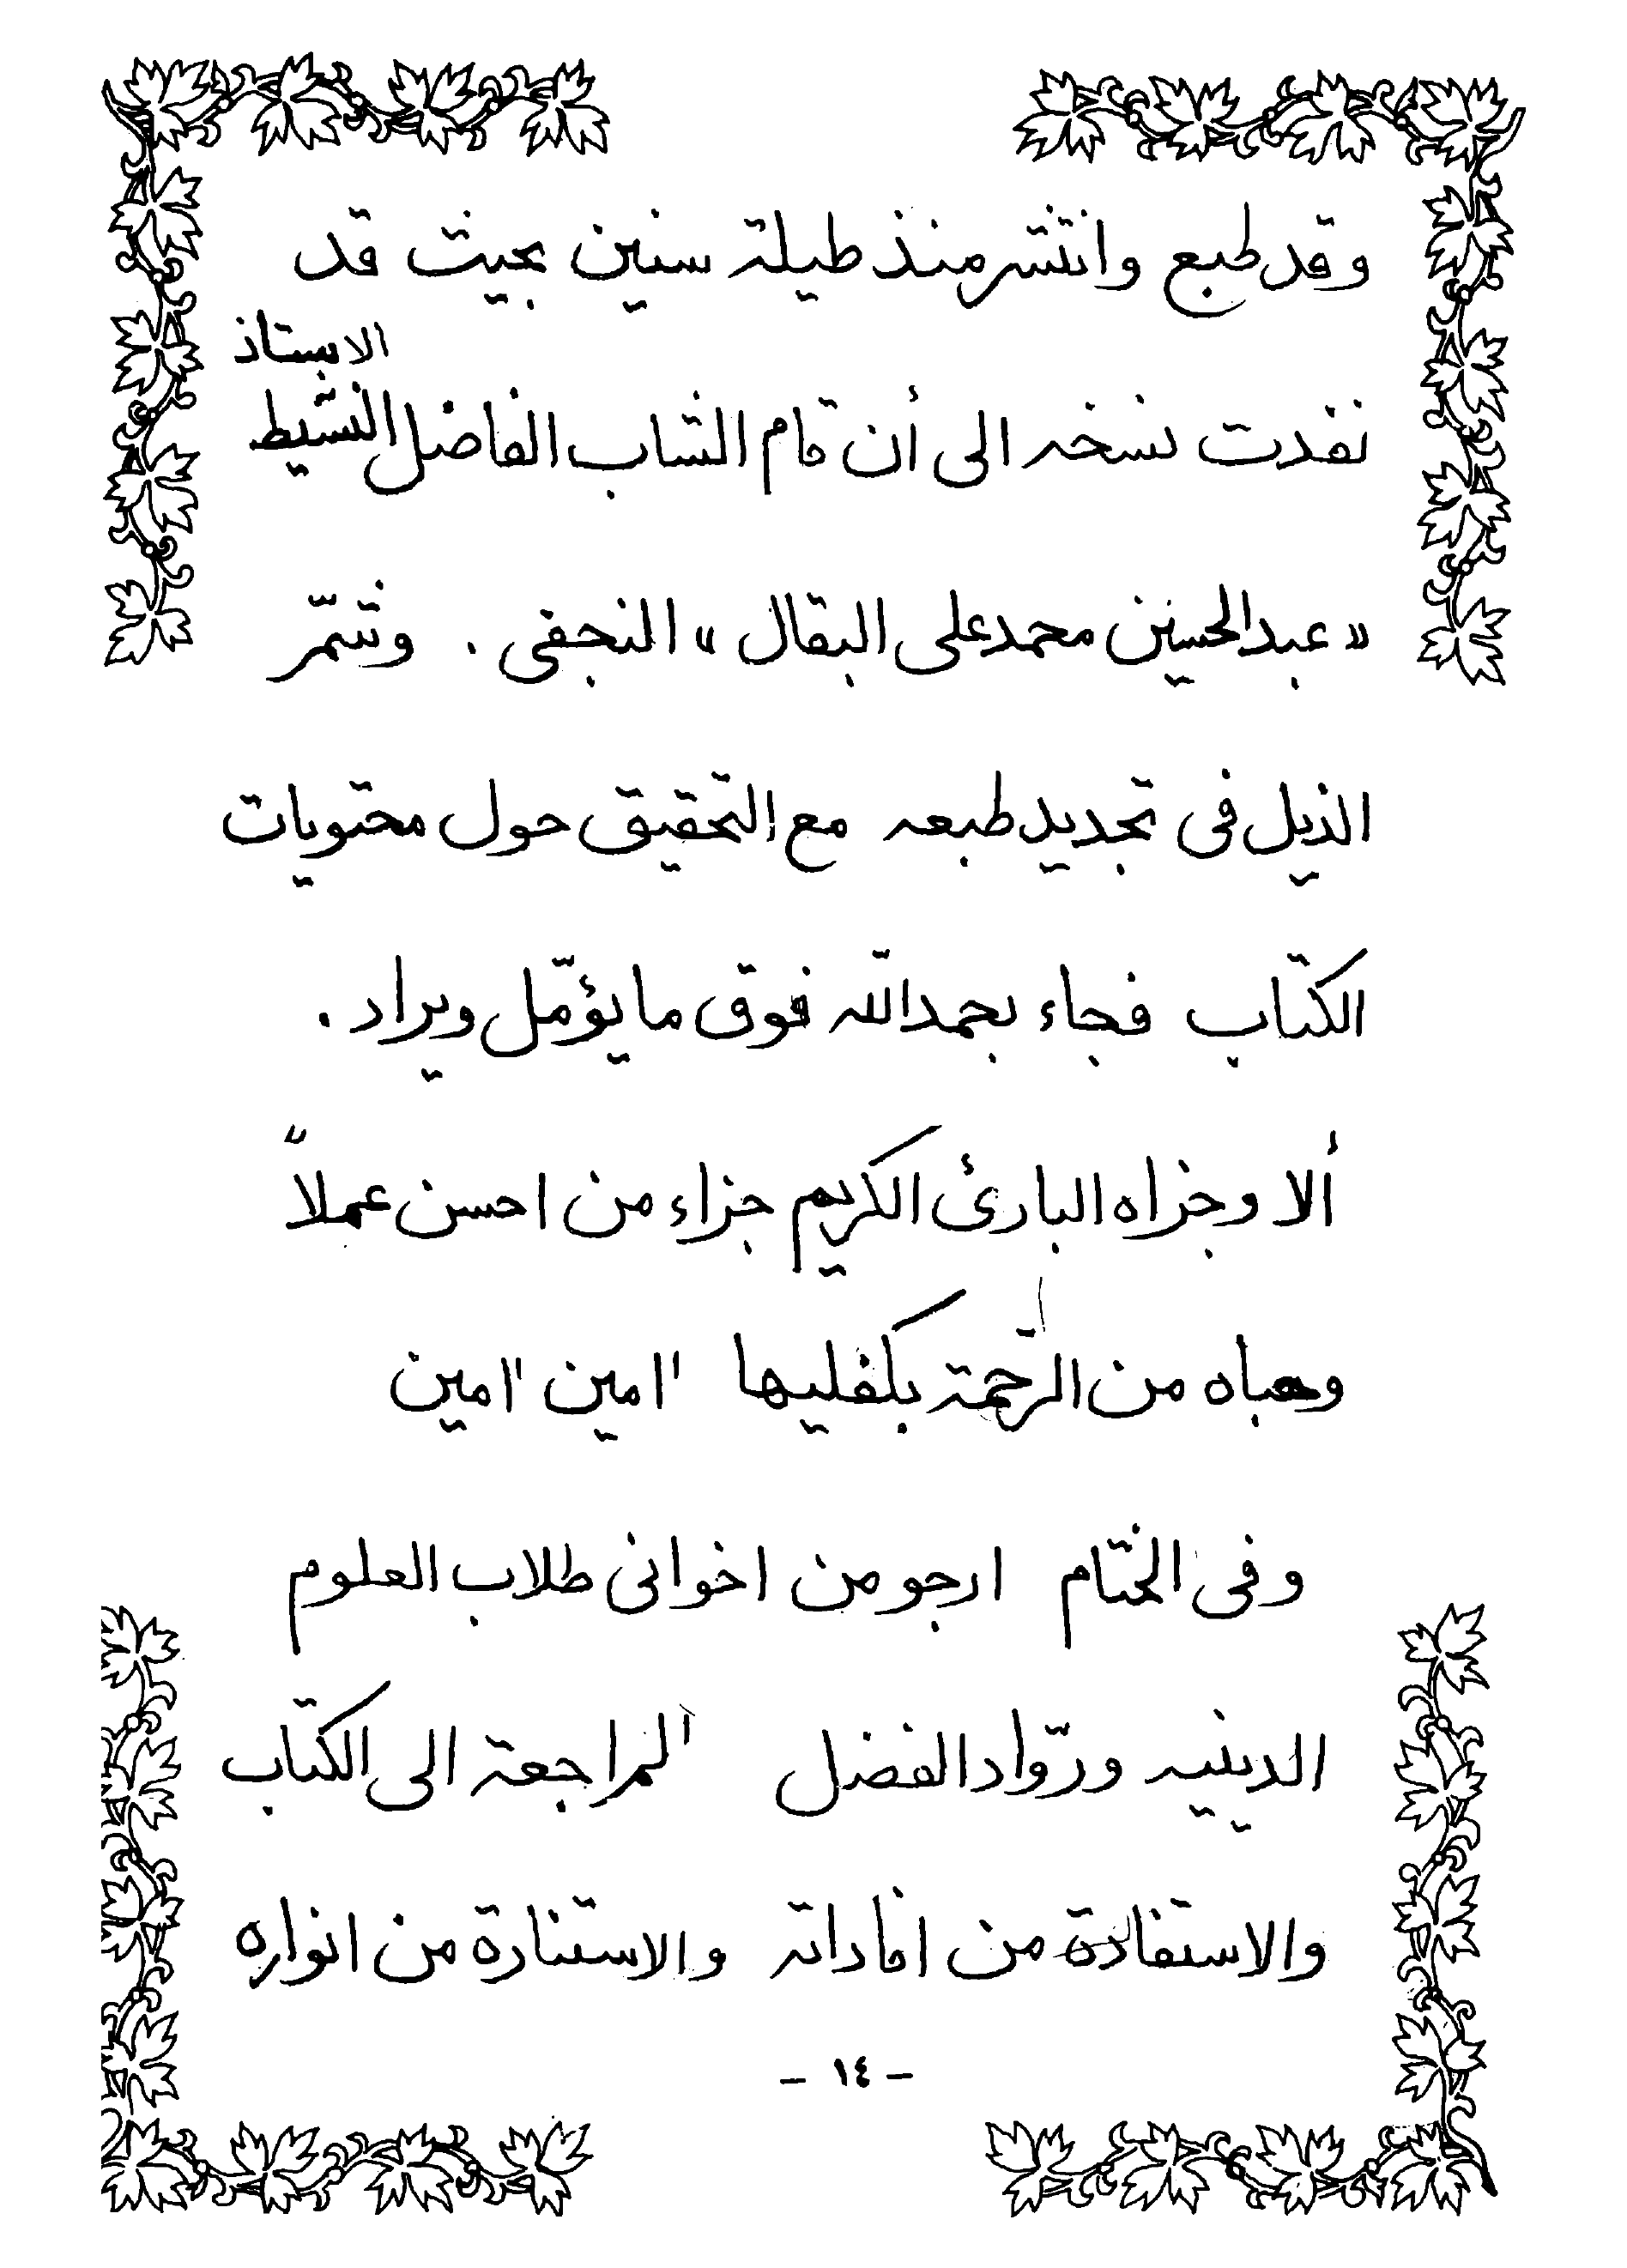 وقد طبع وانتشر منذ طيلة سنين بحيث قد
الاستاذ
نفدت نسخه الى أن قام الشاب الفاضل النشيط
« عبدالحسين محمدعلى البقال » النجفى . وشمّر
الذيل فى تجديد طبعه مع التحقيق حول محتويات
الكتاب فجاء بحمدالله فوق ما يؤمّل ويراد .
ألا وجزاه البارئ الكريم جزاء من احسن عملاً
وحباه من الرّحمة بكفليها امين امين
وفى الختام ارجو من اخوانى طلاب العلوم
الدينيه وروّاد الفضل المراجعة الى الكتاب
والاستفادة من افاداته والاستنارة من انواره
- ١٤ -